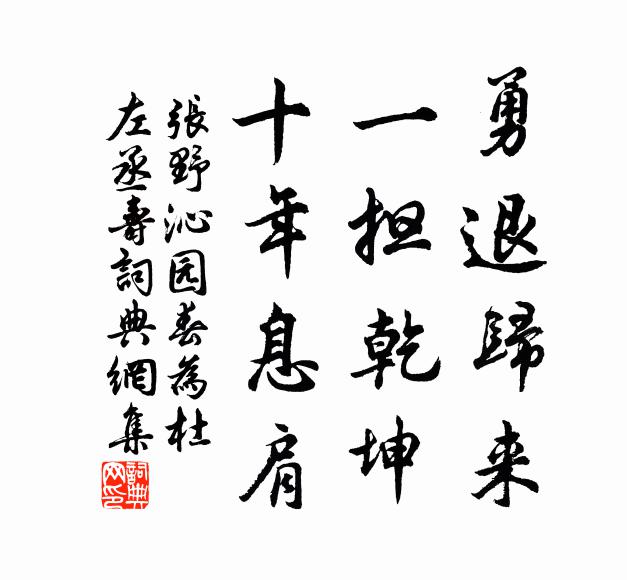 勇退歸来
一担乾坤
十年息肩
張野沁园春為杜
左丞壽詞典網集
詞典网印